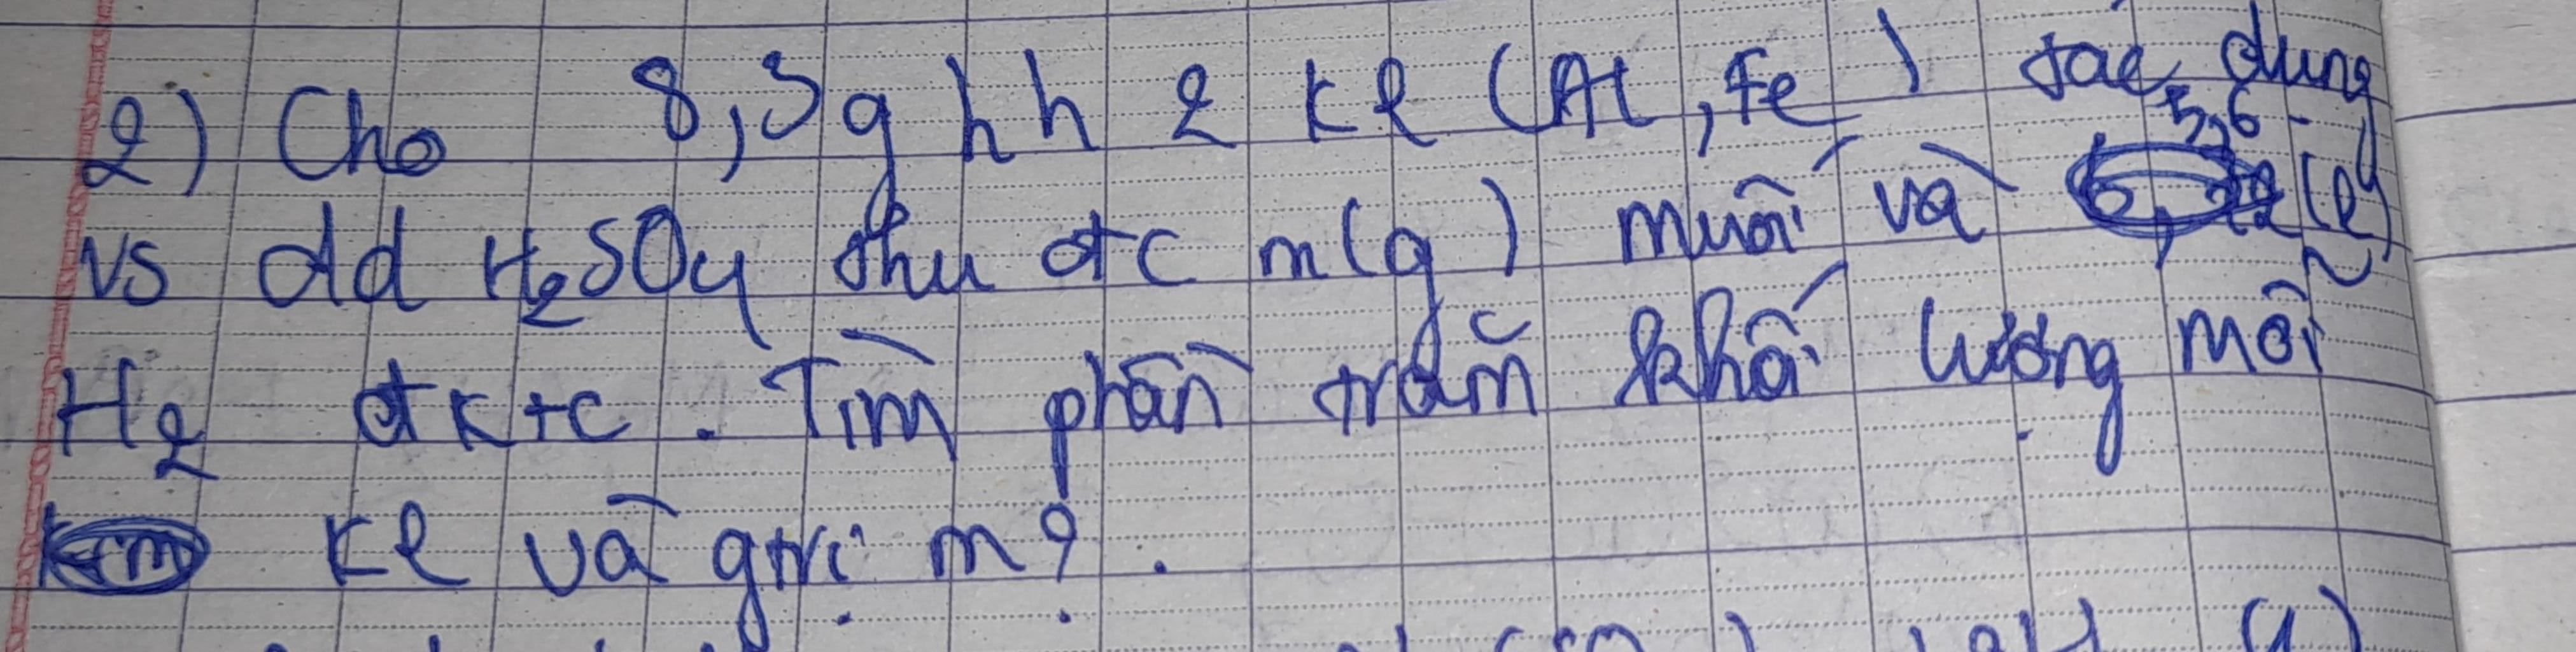 2) Cho 8,3g hh 2 kl (Al, Fe) tác dụng
vs dd H2SO4 thu đc m(g) muối và 5,6 (l)
H2 đktc. Tìm phần trăm khối lượng mỗi
kl và gtrị m?.